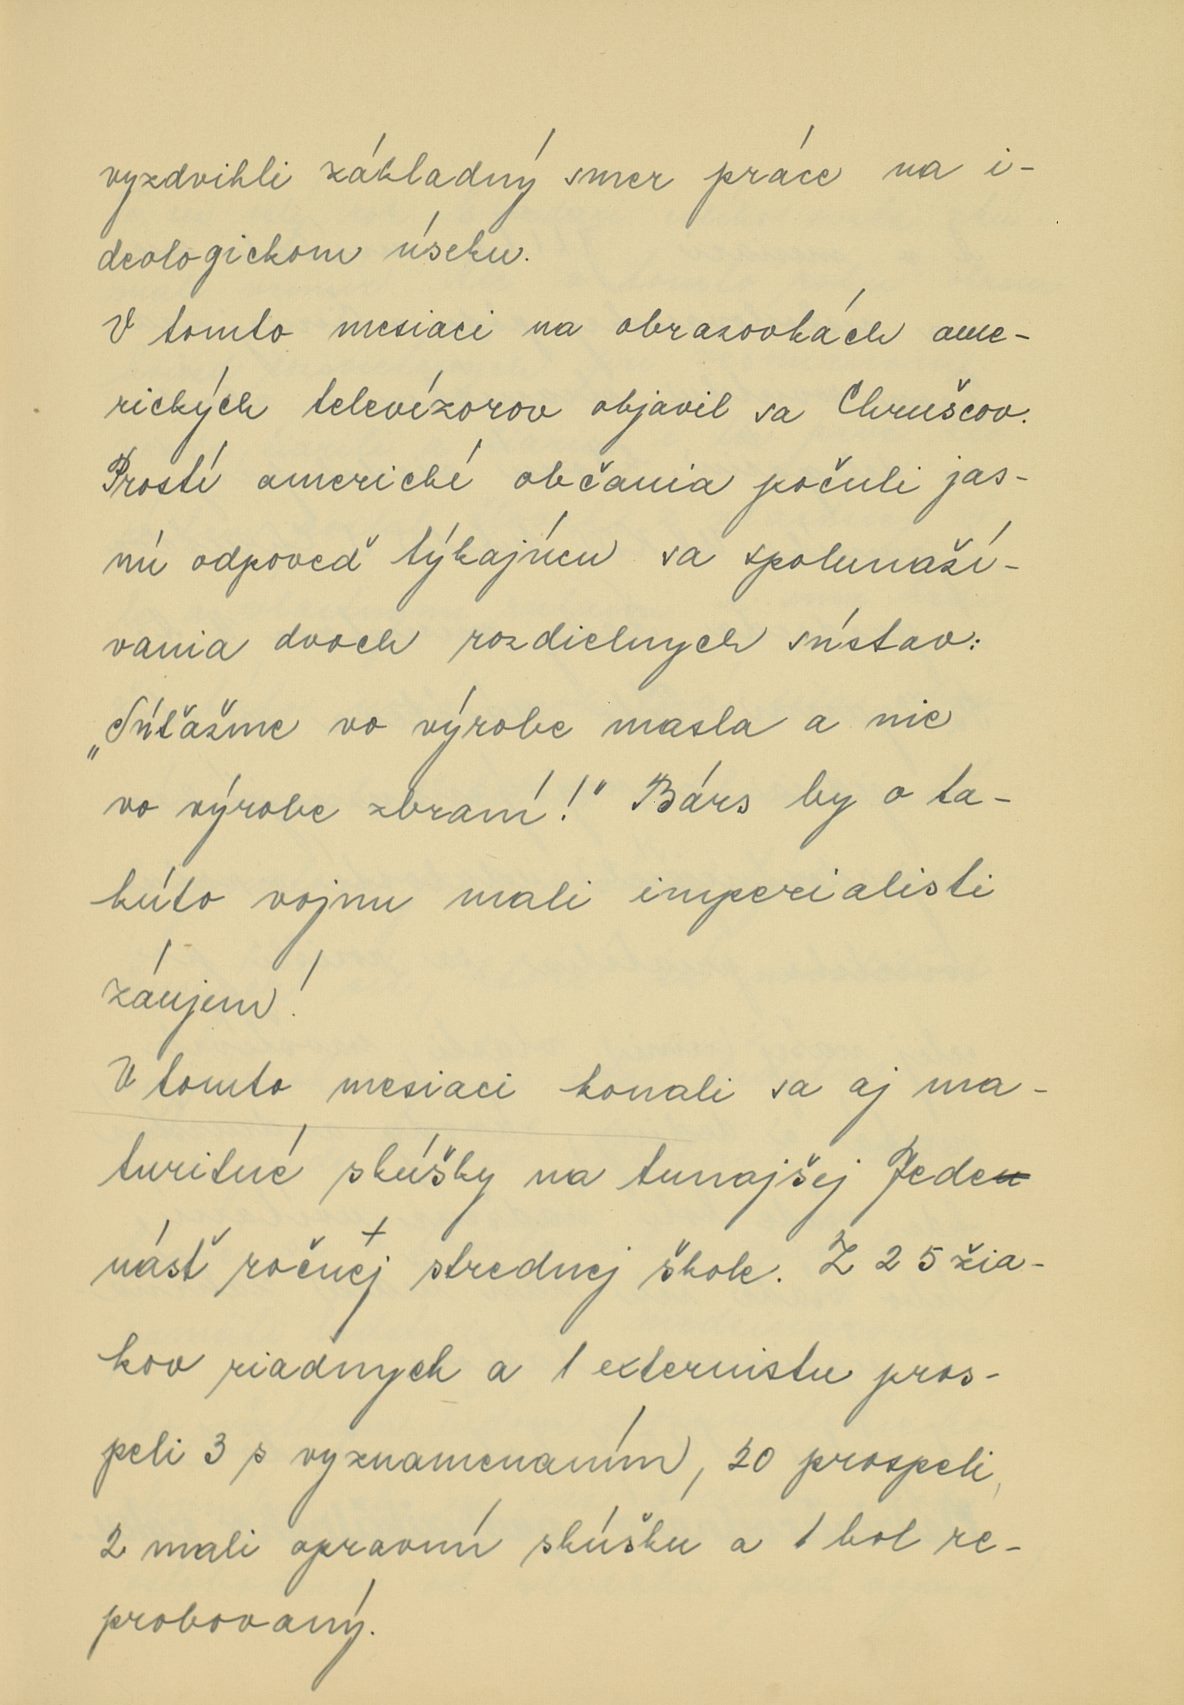 vyzdvihli základný smer práce na i-
deologickom úseku.
V tomto mesiaci na obrazovkách ame-
rických televízorov objavil sa Chruščov.
Prostí americkí občania počuli jas-
nú odpoveď týkajúcu sa spolunaží-
vania dvoch rozdielnych sústav:
„Súťažme vo výrobe masla a nie
vo výrobe zbraní!" Bárs by o ta-
kúto vojnu mali imperialisti
záujem!
V tomto mesiaci konali sa aj ma-
turitné skúšky na tunajšej Jeden
násť ročnej strednej škole. Z 25 žia-
kov riadnych a 1 externistu pros-
peli 3 s vyznamenaním, 20 prospeli,
2 mali opravnú skúšku a 1 bol re-
probovaný.